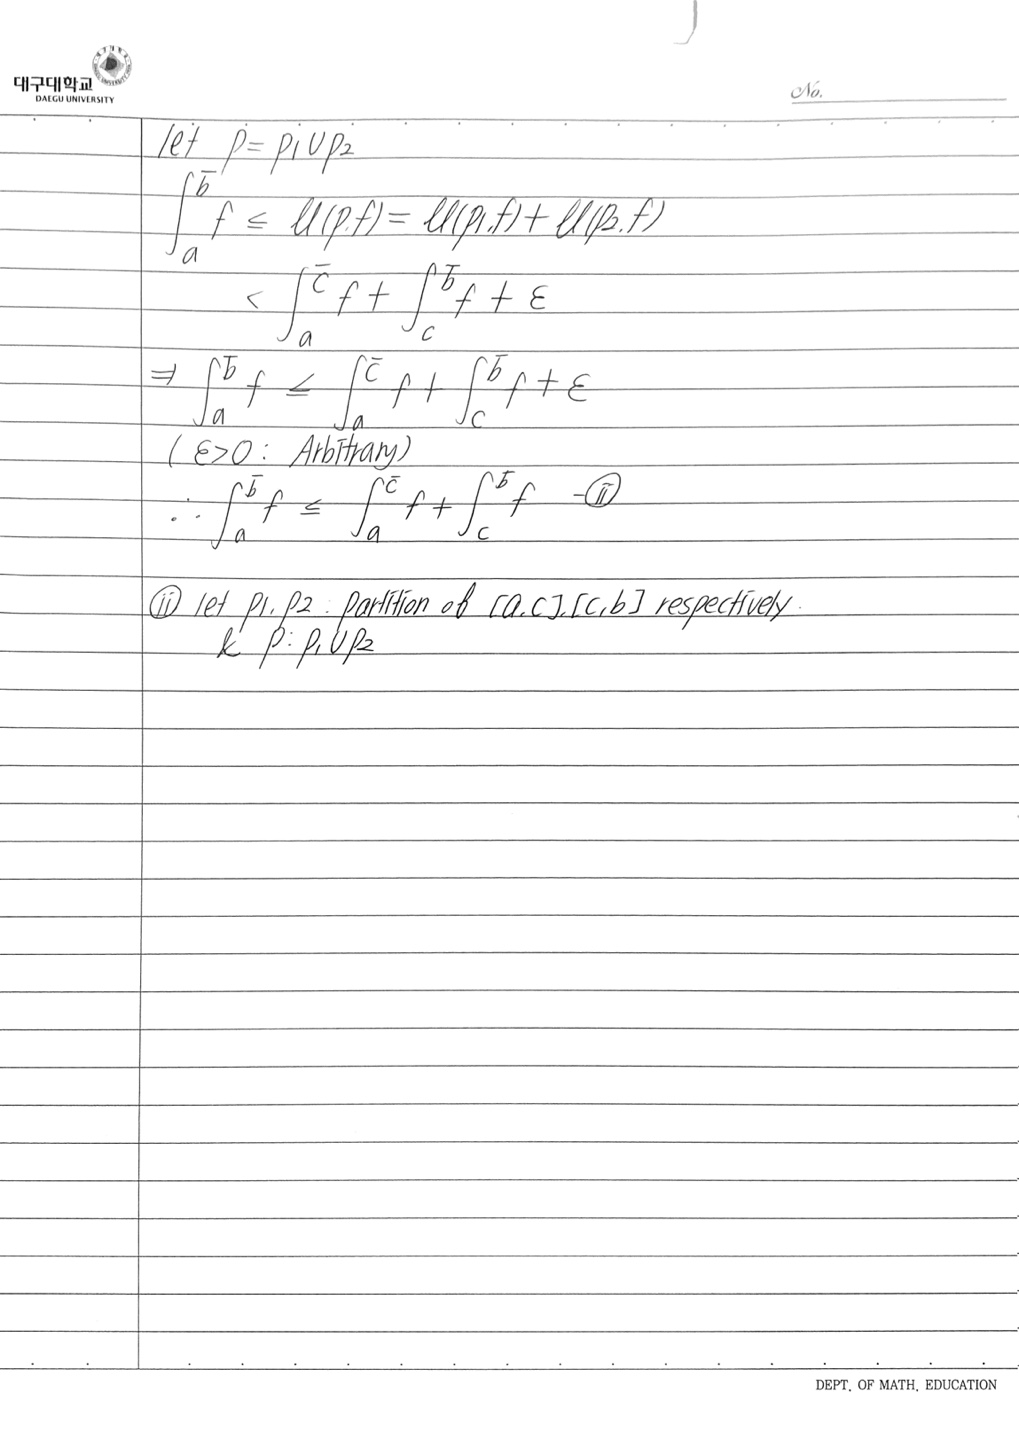 대구대학교
DAEGU UNIVERSITY
No.
let p = p₁∪p₂
∫ₐ^b̄ f ≤ U(p.f) = U(p₁.f) + U(p₂.f)
< ∫ₐ^c̄ f + ∫_c^b̄ f + ε
⇒ ∫ₐ^b̄ f ≤ ∫ₐ^c̄ f + ∫_c^b̄ f + ε
( ε>0 : Arbitrary)
∴ ∫ₐ^b̄ f ≤ ∫ₐ^c̄ f + ∫_c^b̄ f -ⓘⓘ
ⓘⓘ let p₁. p₂ : partition of [a.c].[c,b] respectively.
& p: p₁∪p₂
DEPT. OF MATH. EDUCATION